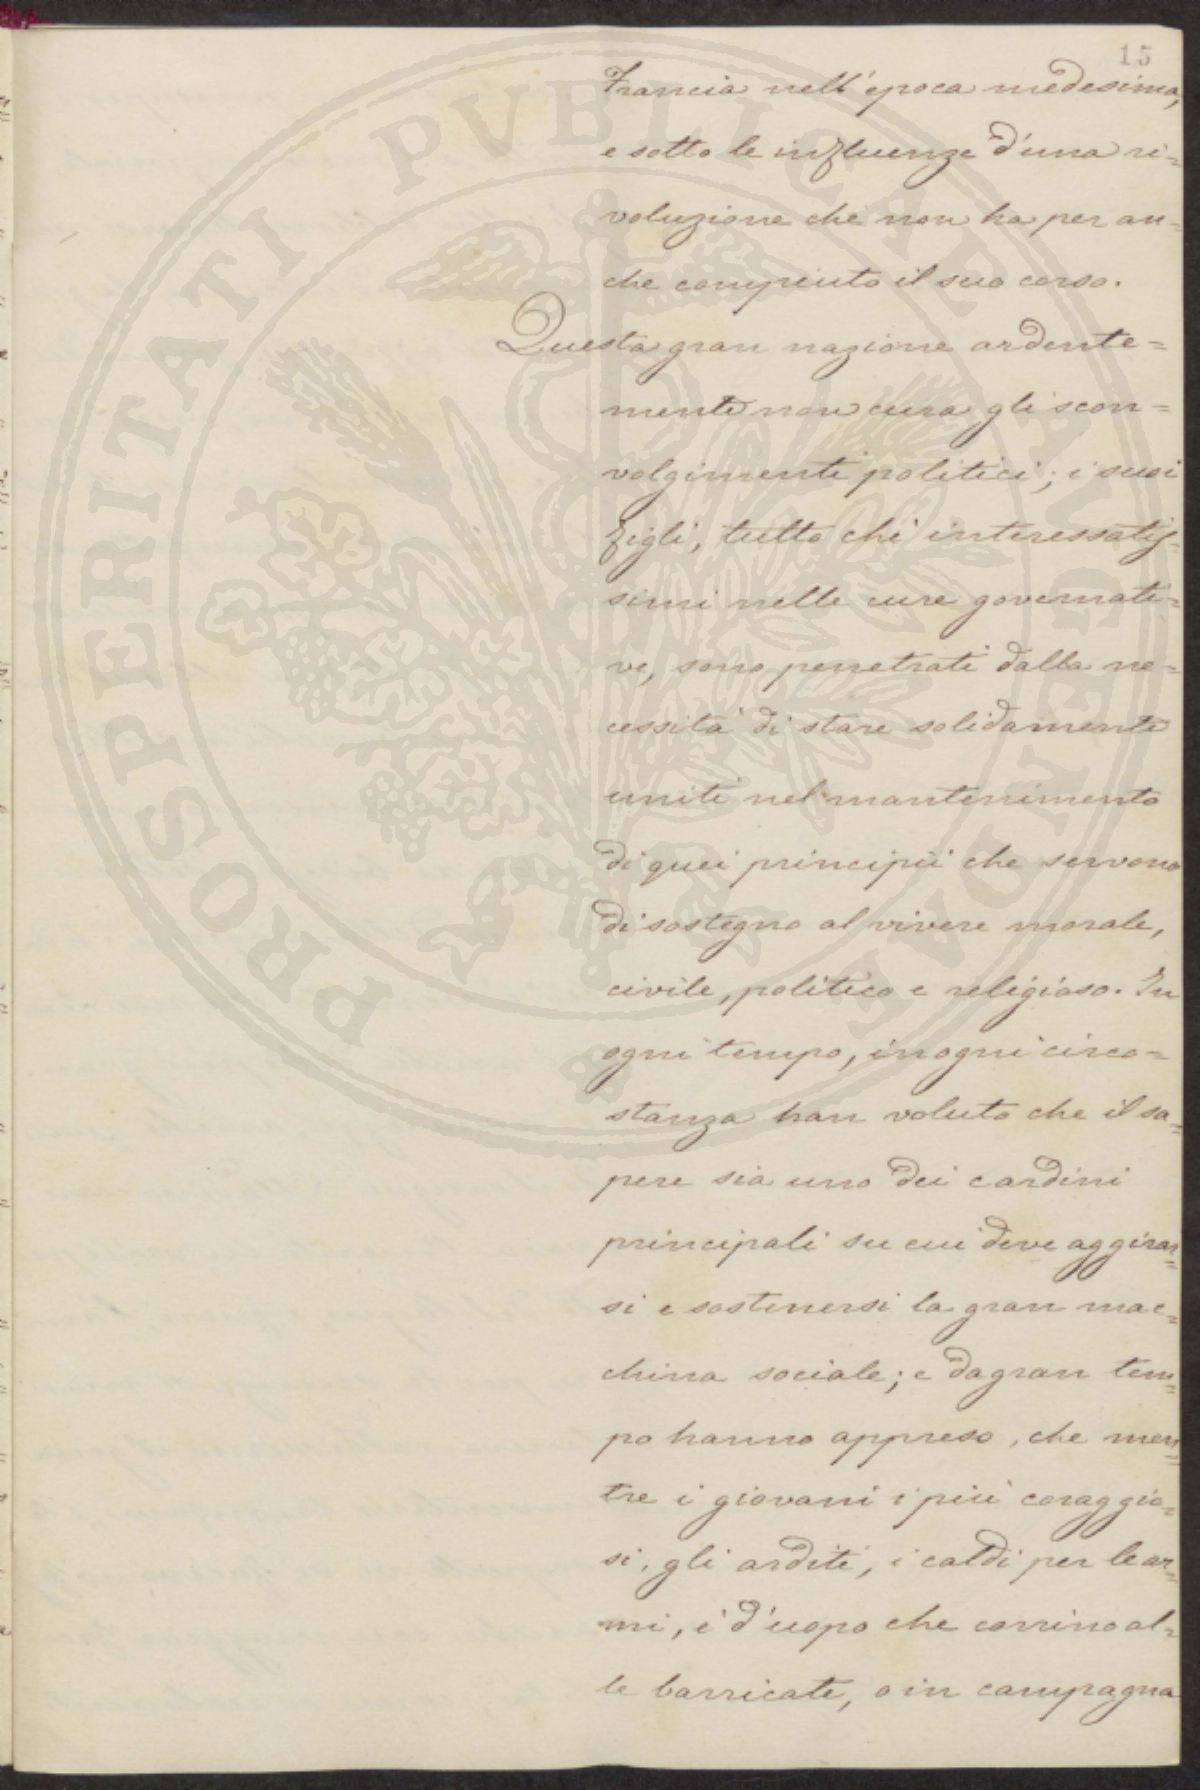 15
Francia nell'epoca medesima,
e sotto le influenze d'una ri=
voluzione che non ha per an=
che compiuto il suo corso.
Questa gran nazione ardente=
mente non cura gli scon=
volgimenti politici; i suoi
figli, tutto chè interessatis=
simi nelle cure governati=
ve, sono penetrati dalla ne=
cessità di stare solidamente
uniti nel mantenimento
di quei principii che servono
di sostegno al vivere morale,
civile, politico e religioso. In
ogni tempo, in ogni circo=
stanza han voluto che il sa=
pere sia uno dei cardini
principali su cui deve aggirar=
si e sostenersi la gran mac=
china sociale; e da gran tem=
po hanno appreso, che men=
tre i giovani i più coraggio=
si, gli arditi, i caldi per le ar=
mi, è d'uopo che corrino al=
le barricate, o in campagna
PROSPERITATI PVBLICAE AVGENDAE